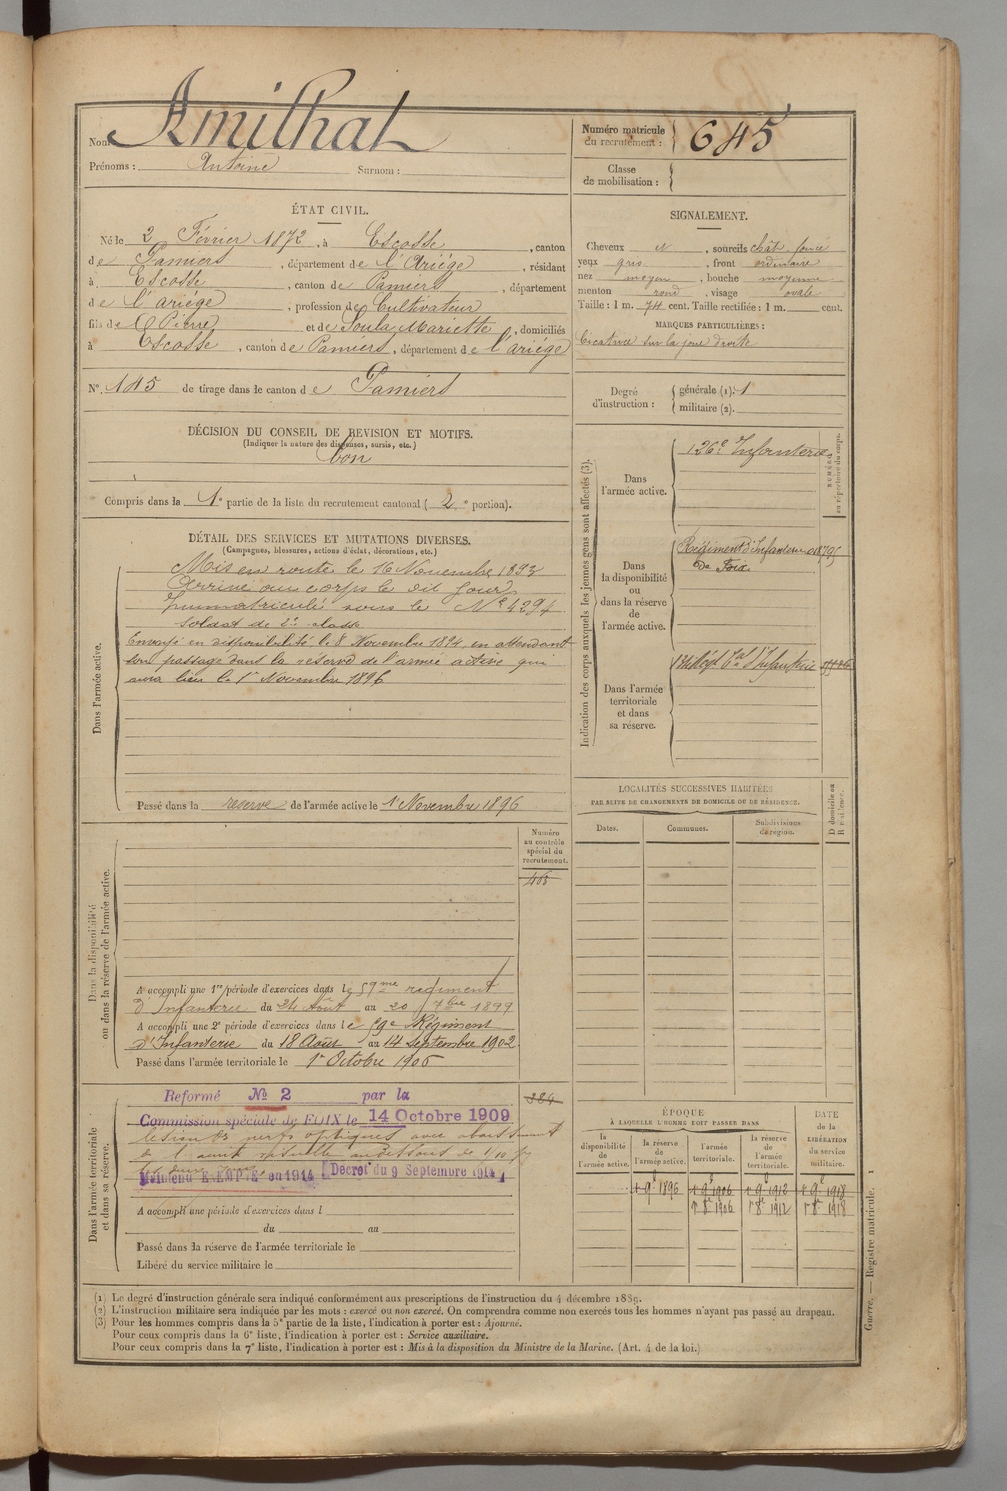 Nom Amilhat
Prénoms : Antoine Surnom :
Numéro matricule
du recrutement : 645
Classe
de mobilisation :
ÉTAT CIVIL.
Né le 2 Février 1872, à Escosse, canton
de Pamiers, département de l'Ariége, résidant
à Escosse, canton de Pamiers, département
de l'ariége, profession de Cultivateur
fils de Pierre et de Soula Mariette, domiciliés
à Escosse, canton de Pamiers, département de l'ariége
No. 145 de tirage dans le canton de Pamiers
DÉCISION DU CONSEIL DE REVISION ET MOTIFS.
(Indiquer la nature des dispenses, sursis, etc.)
bon
Compris dans la 1e partie de la liste du recrutement cantonal ( 2 e portion).
SIGNALEMENT.
Cheveux et, sourcils chât. foncé
yeux gris, front ordinaire
nez moyen, bouche moyenne
menton rond, visage ovale
Taille : 1 m. 74 cent. Taille rectifiée : 1 m. cent.
MARQUES PARTICULIÈRES :
Cicatrice sur la joue droite
Degré
d'instruction :
générale (1). 1
militaire (2).
DÉTAIL DES SERVICES ET MUTATIONS DIVERSES.
(Campagnes, blessures, actions d'éclat, décorations, etc.)
Dans l'armée active.
Mis en route le 16 Novembre 1893
Arrivé au corps le dit jour
Immatriculé sous le No 4294
Soldat de 2e classe
Envoyé en disponibilité le 8 Novembre 1894 en attendant
son passage dans la réserve de l'armée active qui
aura lieu le 1er Novembre 1896
Passé dans la réserve de l'armée active le 1 Novembre 1896
Indication des corps auxquels les jeunes gens sont affectés (3).
Dans
l'armée active.
126e Infanterie
NUMÉRO
au répertoire du corps.
Dans
la disponibilité
ou
dans la réserve
de
l'armée active.
Régiment d'Infanterie
de Foix
Dans l'armée
territoriale
et dans
sa réserve.
LOCALITÉS SUCCESSIVES HABITÉES
PAR SUITE DE CHANGEMENTS DE DOMICILE OU DE RÉSIDENCE.
D domicile ou
R résidence.
Dates. Communes. Subdivisions
de région.
Dans la disponibilité
ou dans la réserve de l'armée active.
Numéro
au contrôle
spécial du
recrutement.
463
A accompli une 1re période d'exercices dans le 59me régiment
d'Infanterie du 24 Août au 20 7bre 1899
A accompli une 2e période d'exercices dans le 59e Régiment
d'Infanterie du 18 Août au 14 Septembre 1902
Passé dans l'armée territoriale le 1er Octobre 1906
Dans l'armée territoriale
et dans sa réserve.
384
Reformé No 2 par la
Commission spéciale de FOIX le 14 Octobre 1909
Maintenu EXEMPTÉ en 1914 Décret du 9 Septembre 1914
A accompli une période d'exercices dans l
du au
Passé dans la réserve de l'armée territoriale le
Libéré du service militaire le
ÉPOQUE
À LAQUELLE L'HOMME DOIT PASSER DANS
la
disponibilité
de
l'armée active.
la réserve
de
l'armée active.
l'armée
territoriale.
la réserve
de
l'armée
territoriale.
DATE
DE LA
LIBÉRATION
du service
militaire.
1er 9e 1896 1er 9e 1906 1er 9e 1912 1er 9e 1918
1er 8e 1906 1er 8e 1912 1er 8e 1918
(1) Le degré d'instruction générale sera indiqué conformément aux prescriptions de l'instruction du 4 décembre 1889.
(2) L'instruction militaire sera indiquée par les mots : exercé ou non exercé. On comprendra comme non exercés tous les hommes n'ayant pas passé au drapeau.
(3) Pour les hommes compris dans la 5e partie de la liste, l'indication à porter est : Ajourné.
Pour ceux compris dans la 6e liste, l'indication à porter est : Service auxiliaire.
Pour ceux compris dans la 7e liste, l'indication à porter est : Mis à la disposition du Ministre de la Marine. (Art. 4 de la loi.)
Guerre. — Registre matricule. 1